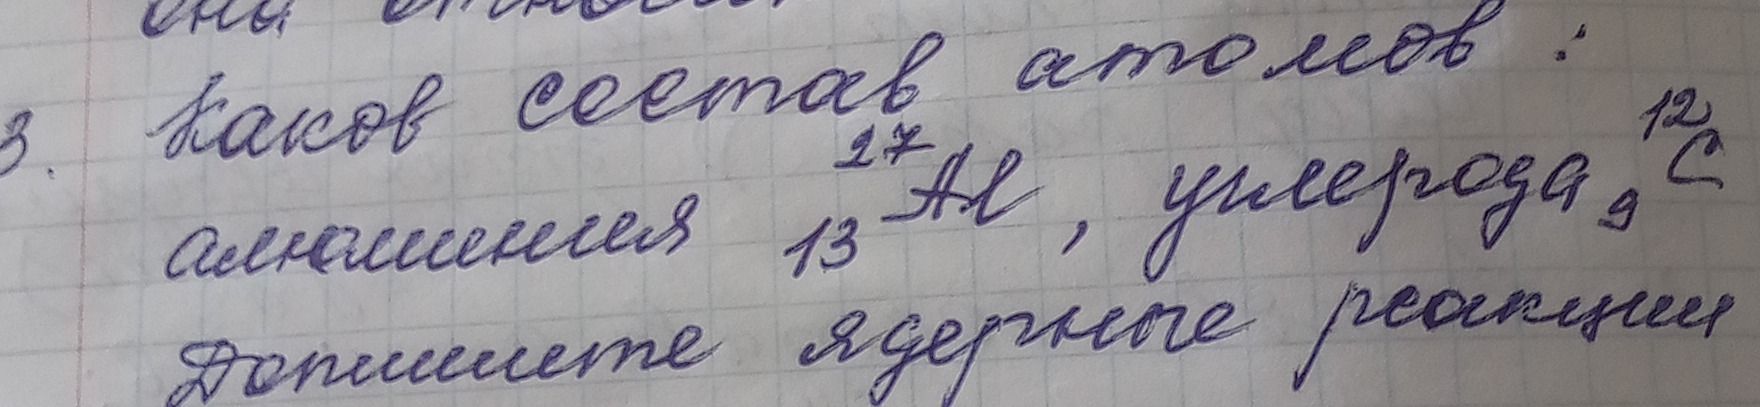 она
3. Каков состав атомов:
алюминия ²⁷₁₃Al, углерода ¹²₉C
Допишите ядерные реакции